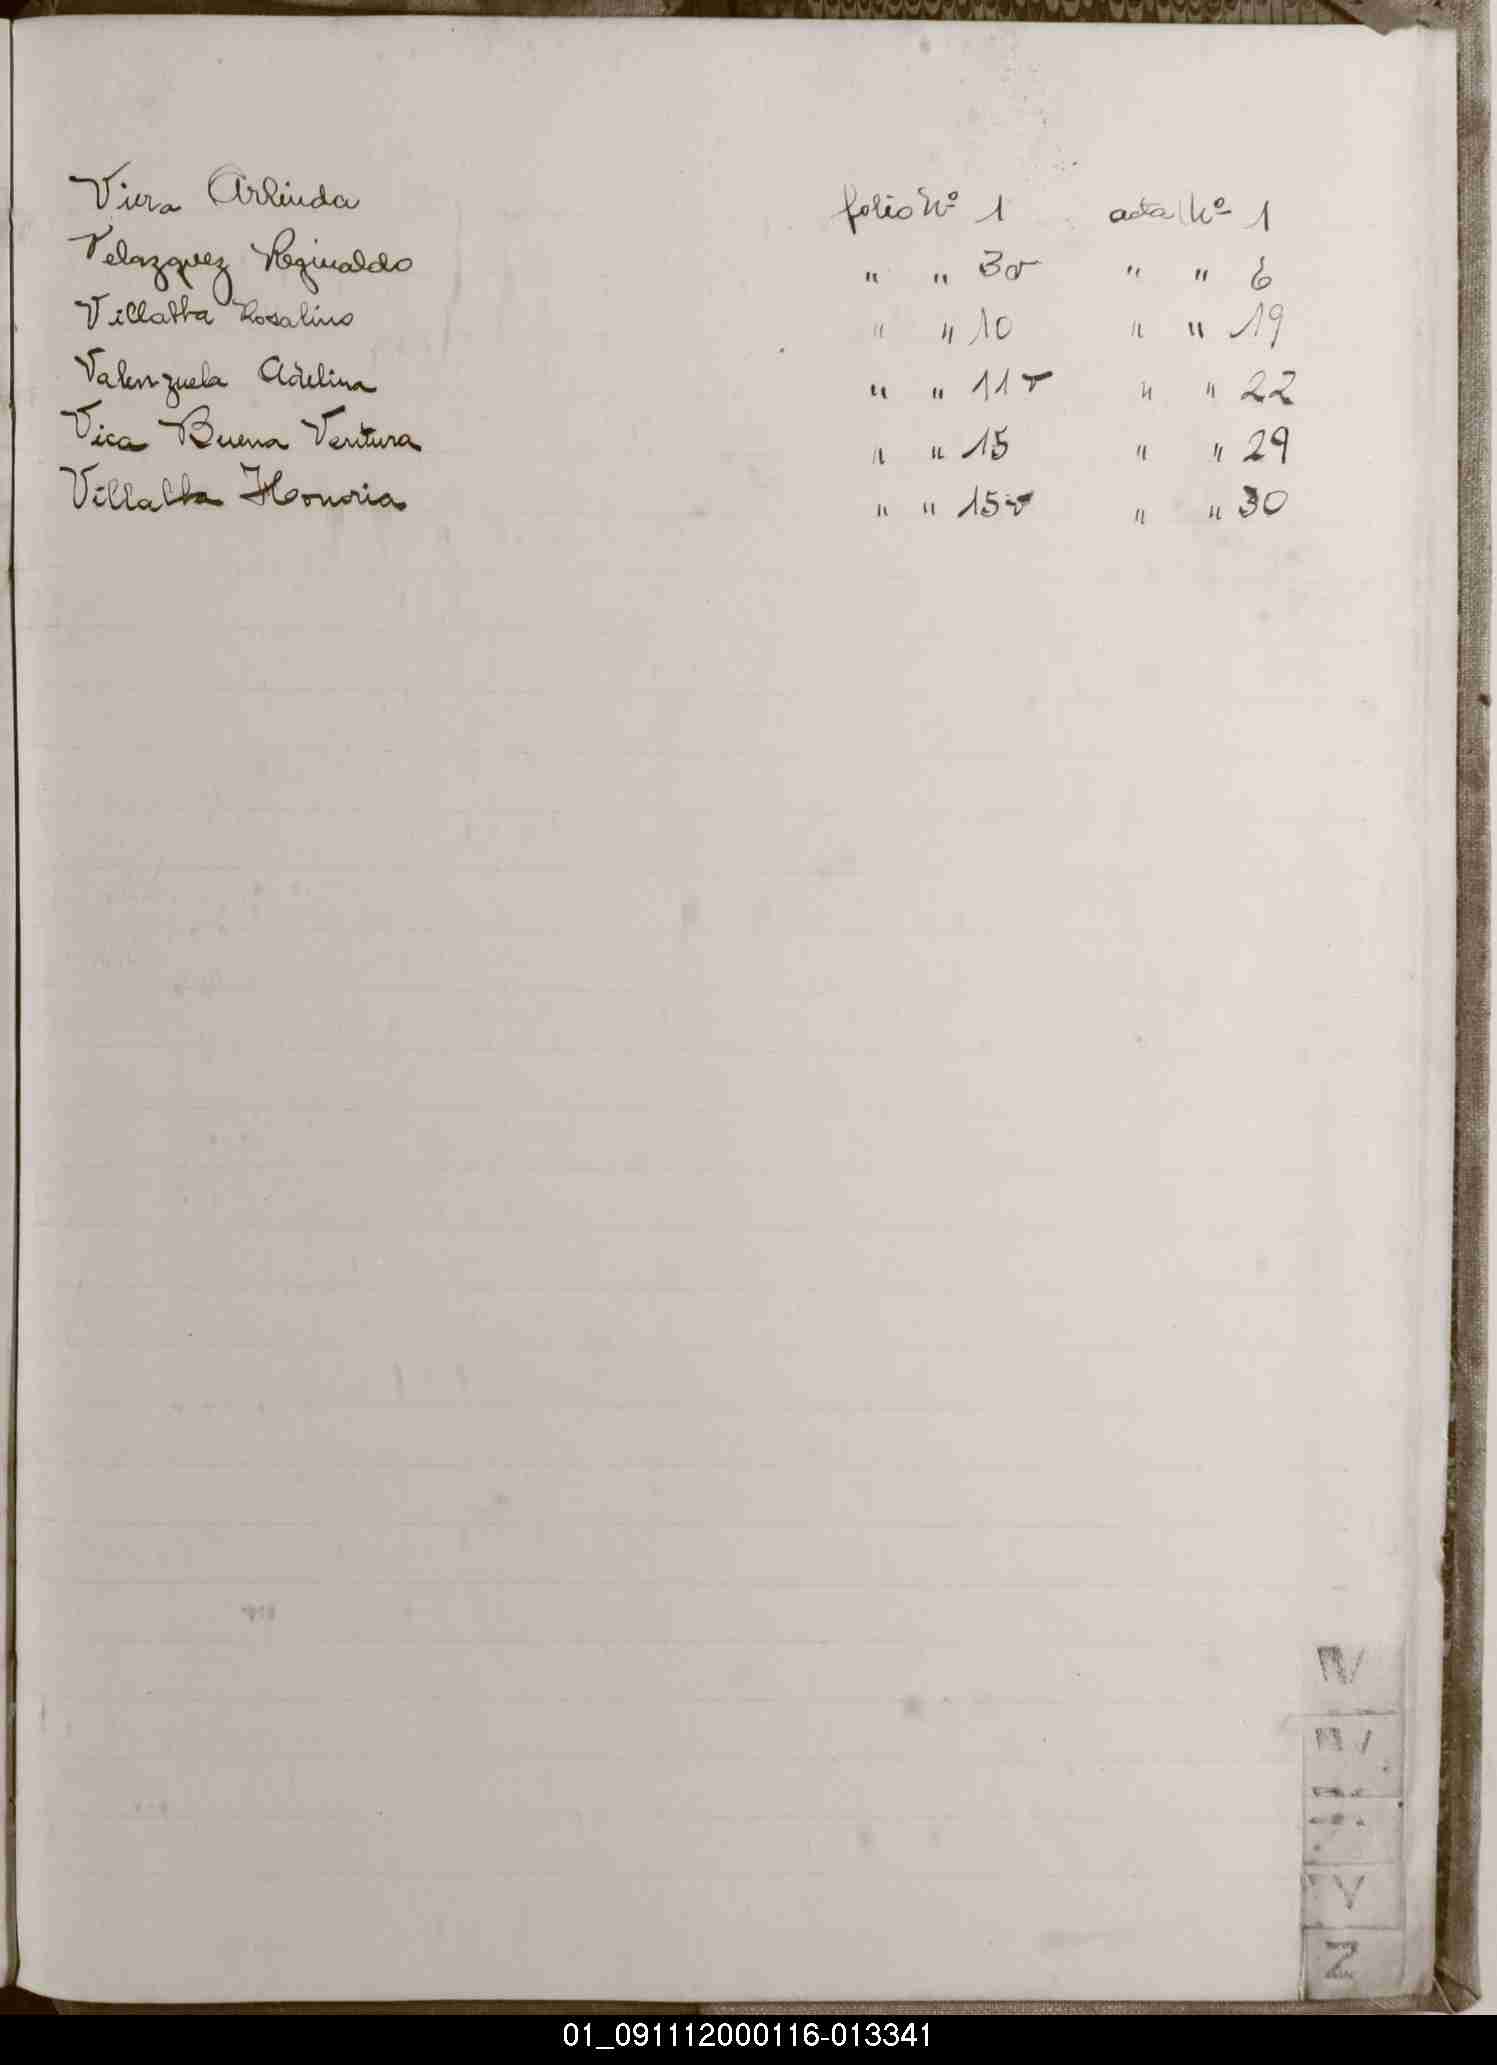 Viera Arlinda folio Nº 1 acta Nº 1
Velazquez Reginaldo " " 3v " " 6
Villalba Rosalino " " 10 " " 19
Valenzuela Adelina " " 11v " " 22
Vica Buena Ventura " " 15 " " 29
Villalba Honoria " " 15v " " 30
V
Y
Z
01_091112000116-013341